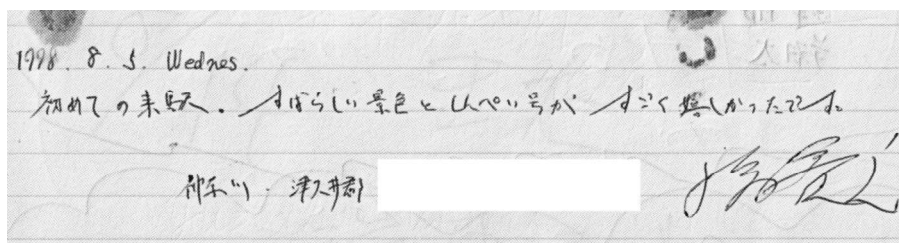 1998. 8. 5. Wednes.
初めての来駅。すばらしい景色としんぺい号がすごく嬉しかったです。
神奈川・津久井郡